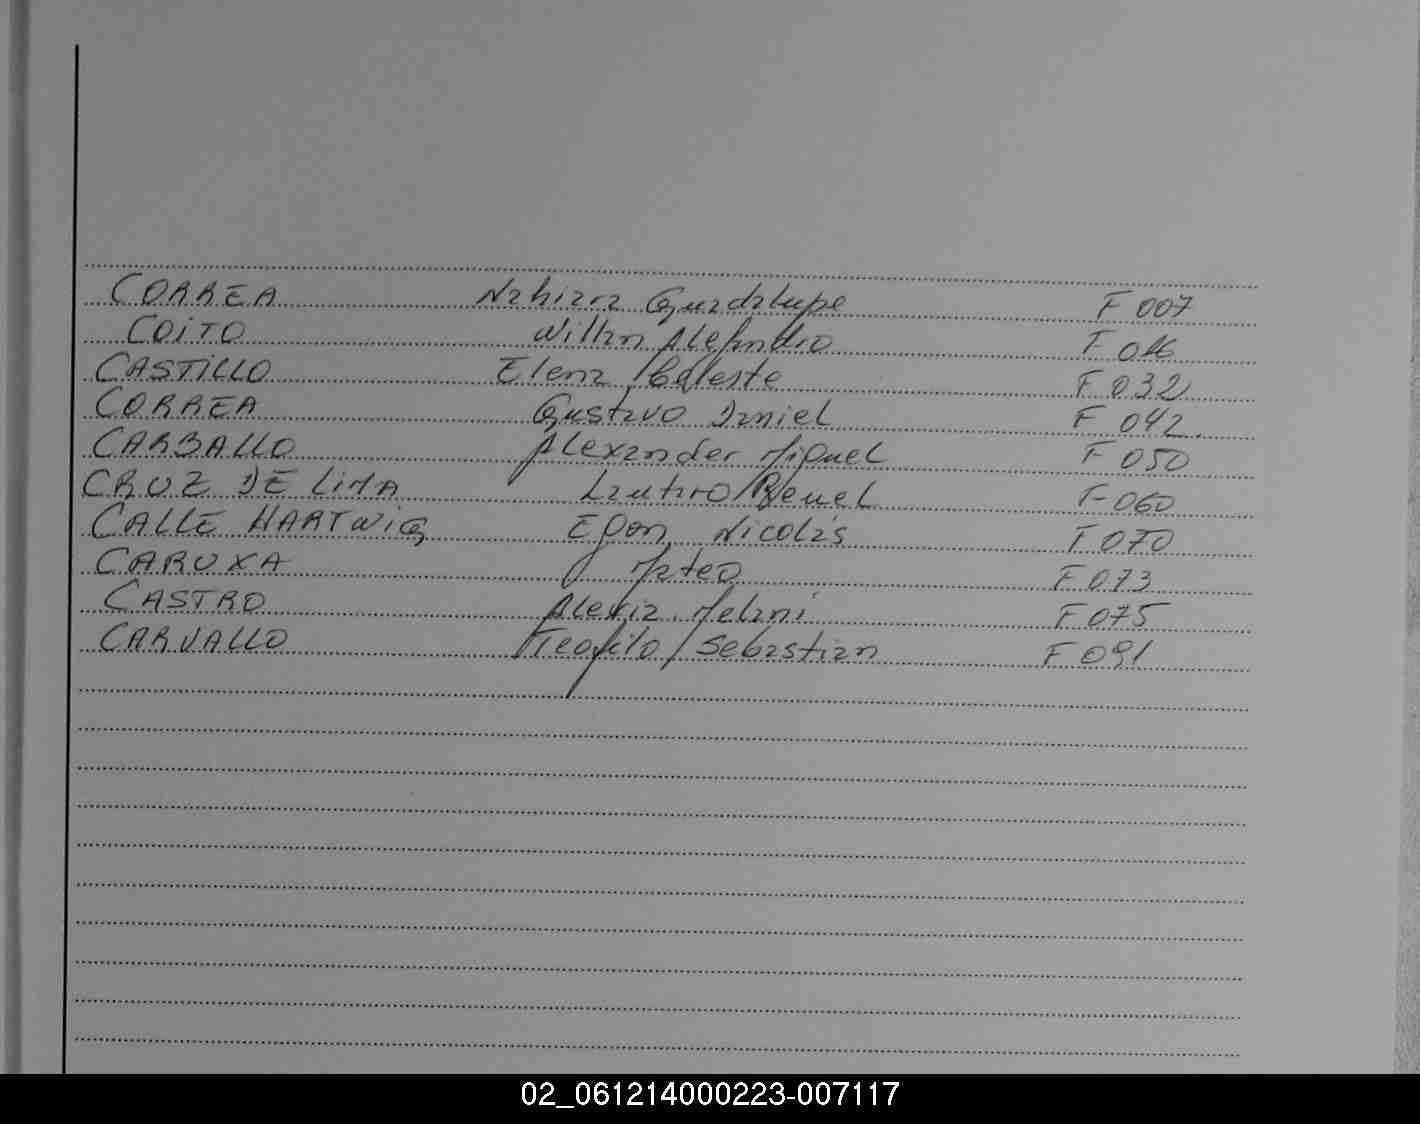 CORREA Nahiara Guadalupe F 007
COiTO Willan Alejandro F 016
CASTiLLO Elena Celeste F 032
CORREA Gustavo Daniel F 042
CARBALLO Alexander Miguel F 050
CRUZ DE LiMA Lautaro Reuel F 060
CALLE HARTWiG Egon Nicolás F 070
CARUXA Mateo F 073
CASTRO Alexia Melani F 075
CARVALLO Teofilo Sebastian F 091
02_061214000223-007117